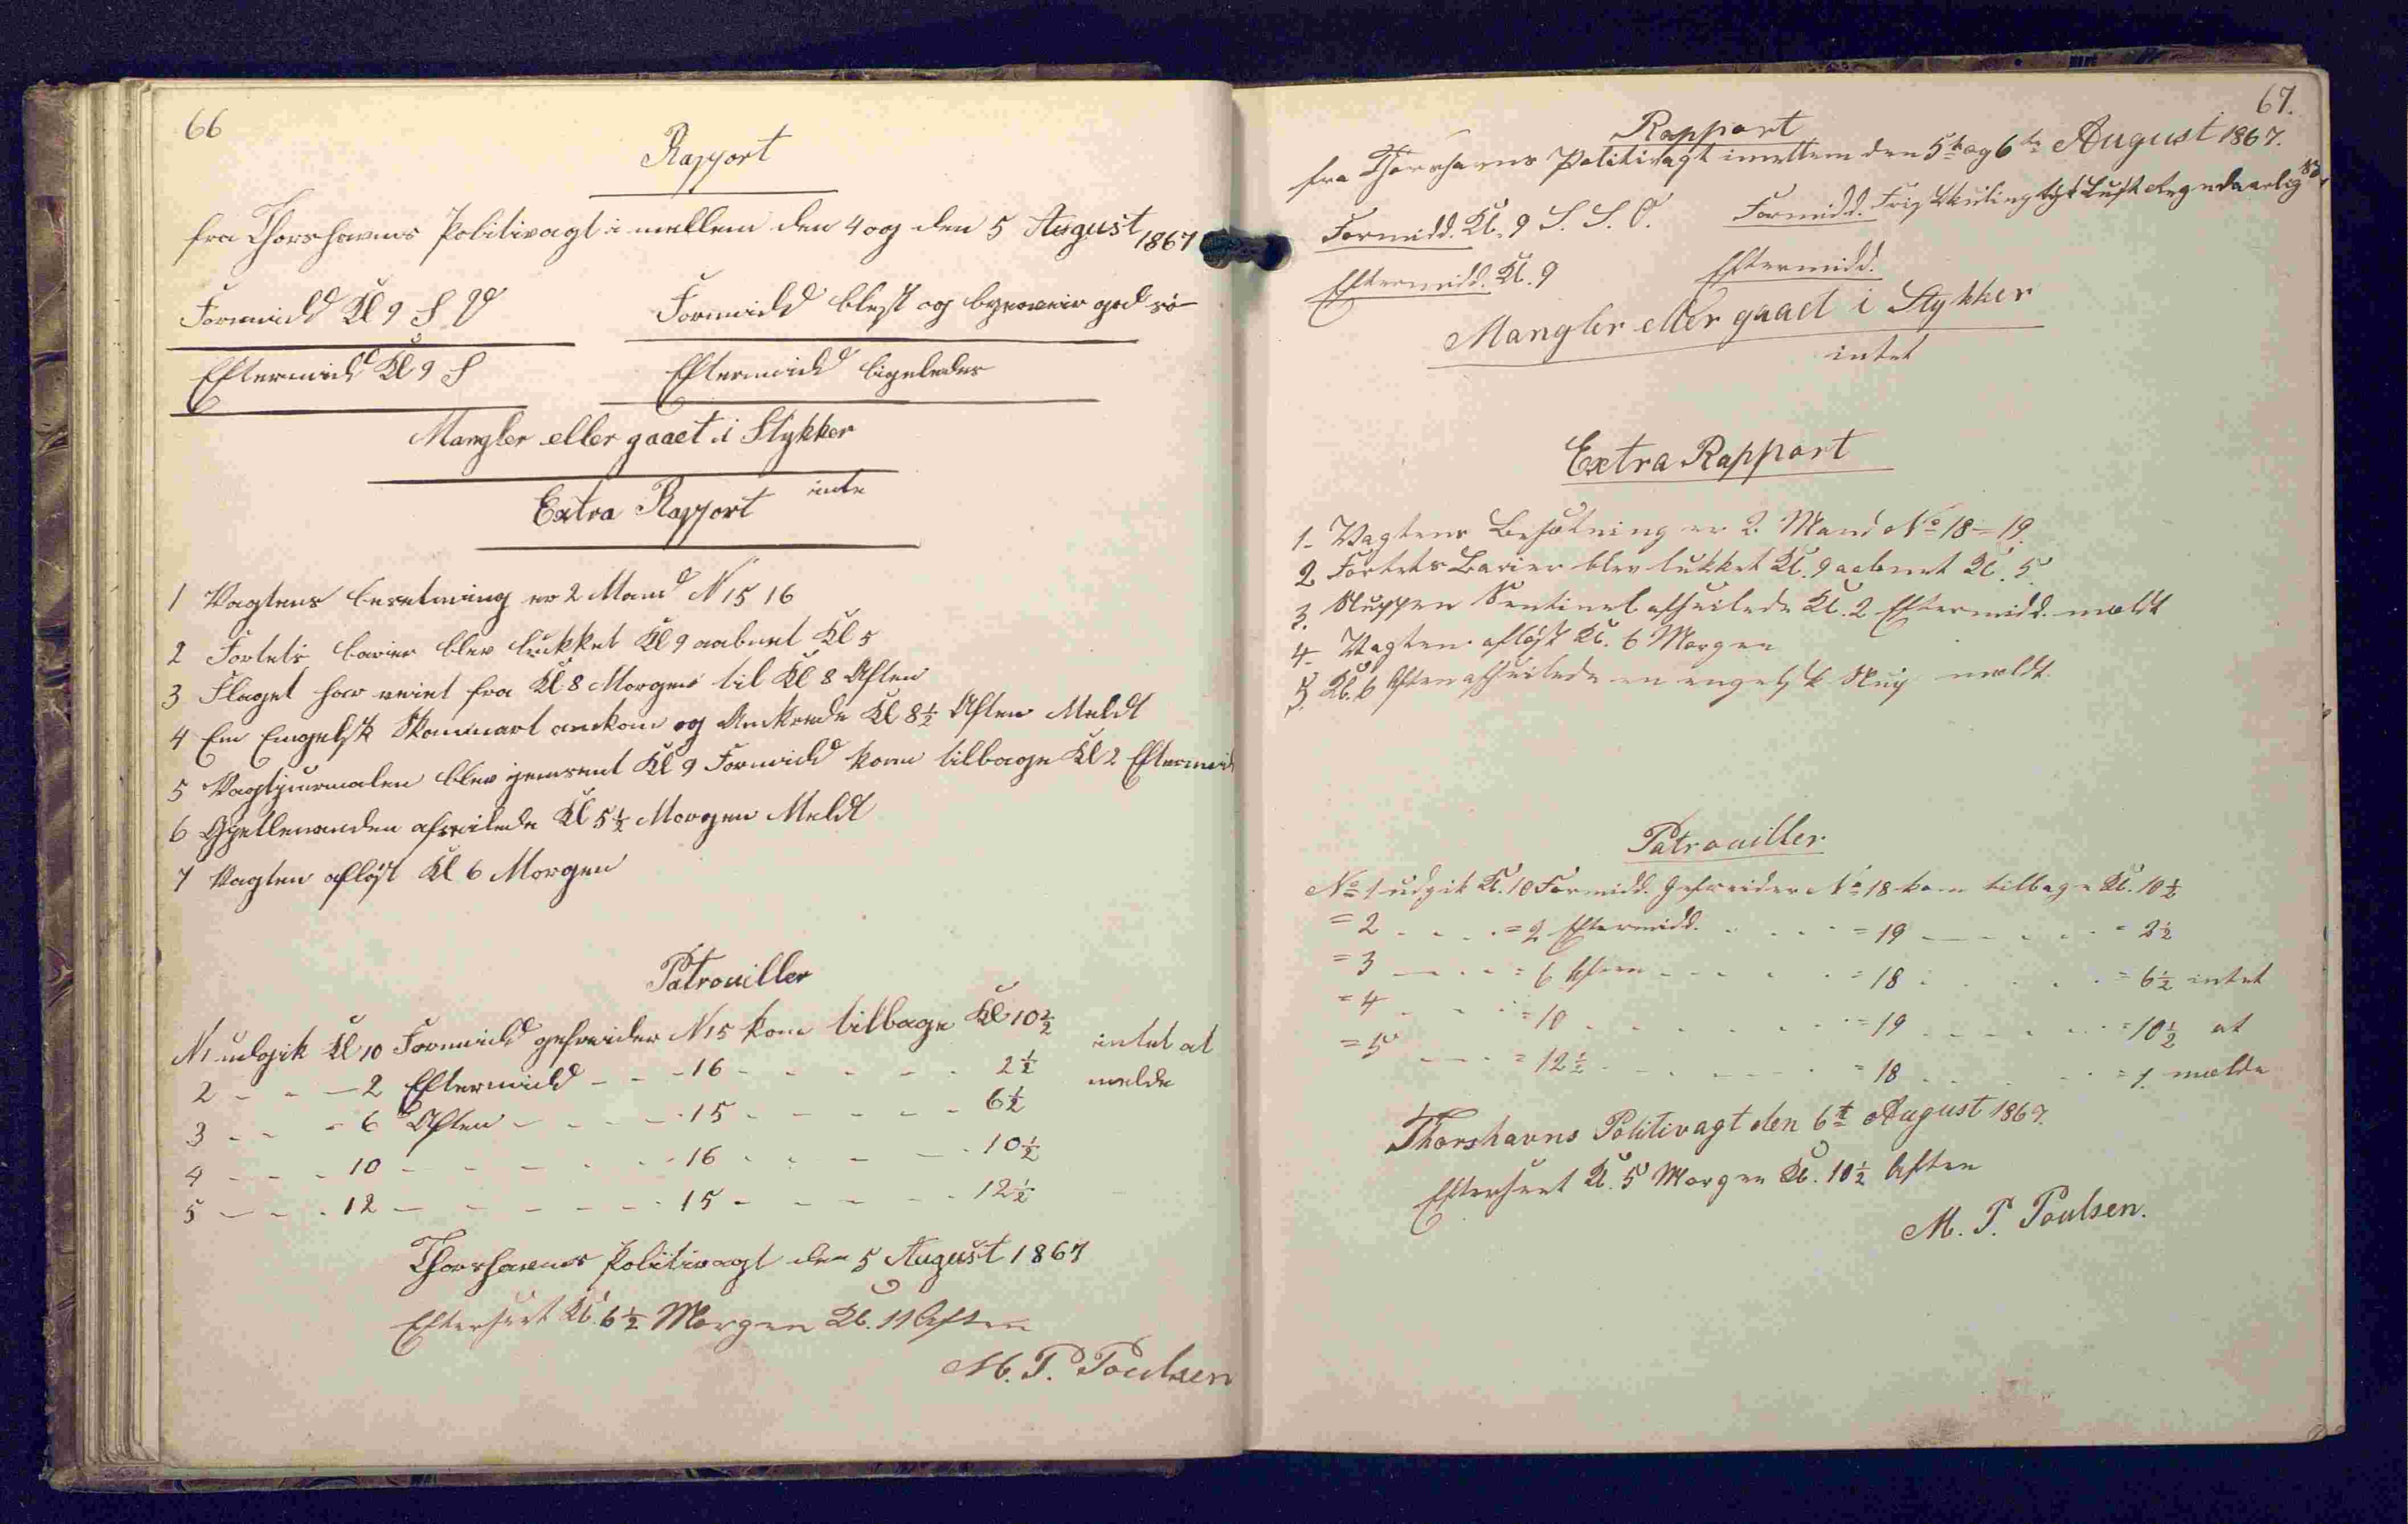 66
Rapport
fra Thorshavns Politivagt i mellem den 4 og den 5 August 1867
Formidd Kl 9 S V
Formidd blest og byeveir god sö
Eftermidd Kl 9 S
Eftermidd ligeledes
Mangler eller gaaet i Stykker
inte
Extra Rapport
1 Vagtens besetning er 2 Mand N 15 16
2 Fortets barier blev lukket Kl 9 aabnet Kl 5
3 Flaget har veiet fra Kl 8 Morgen til Kl 8 Aften
4 Em Engelsk Skonnart ankom og Ankrede Kl 8½ Aften Meldt
5 Vagtjurnalen blev jemsent Kl 9 Formidd kom tilbage Kl 2 Eftermid
6 afseilede Kl 5½ Morgen Meldt
7 Vagten afløst Kl 6 Morgen
Patrouiller
N 1 udgik Kl 10 Formidd gefreider N 15 kom tilbage Kl 10½
2 - - - 2 Eftermidd - - - 16 - - - - - 2½ intet at
3 - - - 6 Aften - - - - 15 - - - - - 6½ melde
4 - - - 10 - - - - - - 16 - - - - - 10½
5 - - - 12 - - - - - - 15 - - - - - 12½
Thorshavns Politivagt den 5 August 1867
Efterseet Kl. 6½ Morgen Kl. 11 Aften
M. P. Poulsen
67.
Rapport
fra Thorshavns Politivagt imellem den 5te og 6te August 1867.
Formidd. Kl. 9 S. S. O.
Formidd. Frisk Kuling tyk Luft Regn daarlig Sö.
Eftermidd. Kl. 9
Eftermidd.
Mangler eller gaaet i Stykker
intet
Extra Rapport
1- Vagtens Besætning er 2. Mand No 18 = 19.
2 Fortets Barier blev lukket Kl. 9 aabnet Kl. 5.
3. Sluppen Sentinel afseilede Kl. 2 Eftermidd. meldt
4- Vagten afløst Kl. 6 Morgen
5. Kl. 6 Aften afseilede en engelsk Slup meldt.
Patrouiller
No 1 udgik Kl. 10 Formidd. Gefreider No 18 kom tilbage Kl. 10½
= 2 - - - - = 2 Eftermidd. - - - - = 19 - - - - - = 2½
= 3 - - - - = 6 Aften - - - - - = 18 - - - - - = 6½ intet
= 4 - - - - = 10 - - - - - - - = 19 - - - - - = 10½ at
= 5 - - - - = 12½ - - - - - - = 18 - - - - - = 1. melde
Thorshavns Politivagt den 6te August 1867.
Efterseet Kl. 5 Morgen Kl. 10½ Aften
M. P. Poulsen.